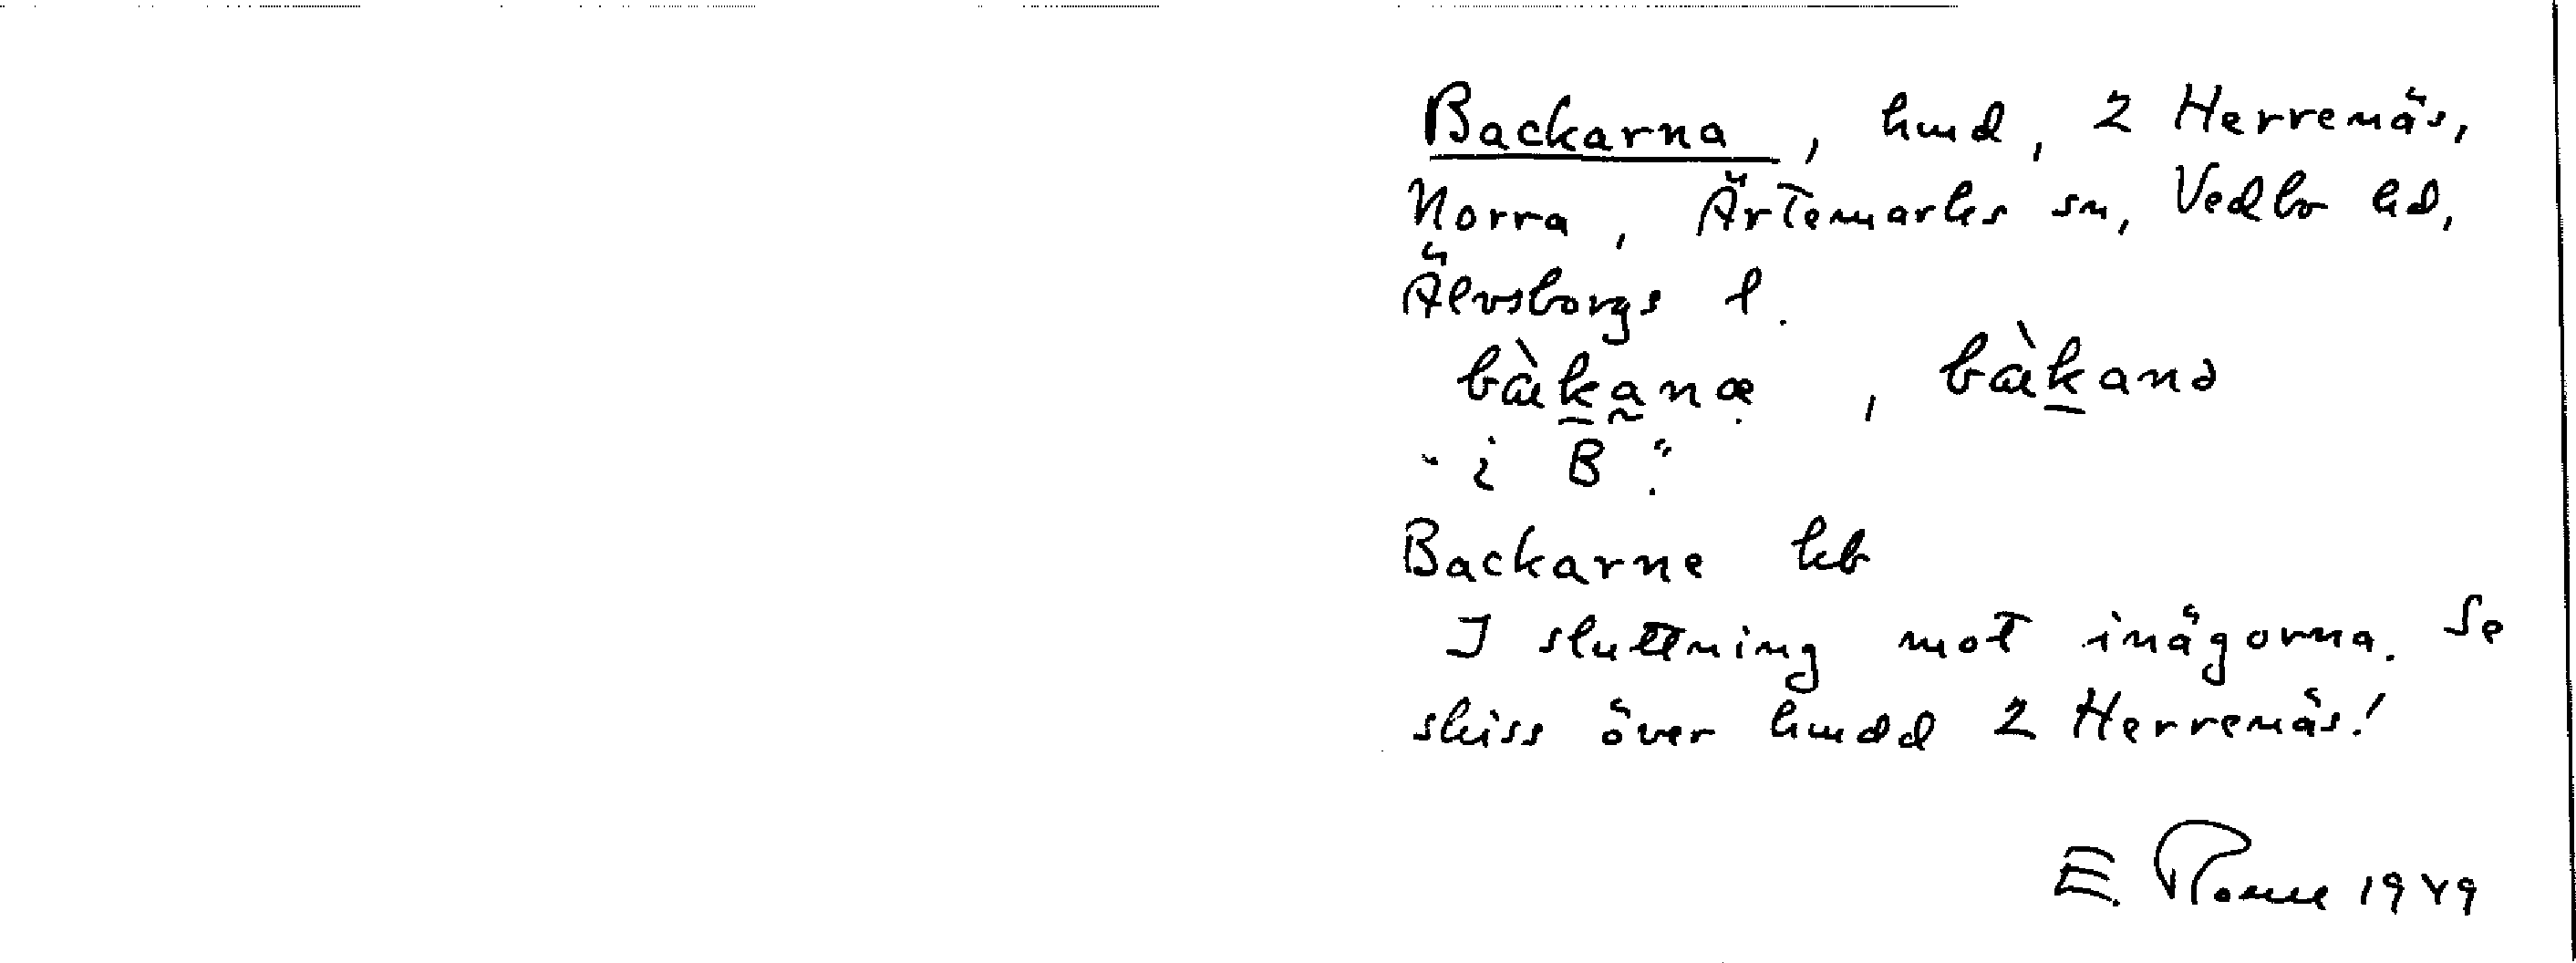 Backarna, hmd, 2 Herrenäs,
Norra, Ärtemarks sn, Vedbo hd,
Älvsborgs l.
bàkanæ, bàkanə
"i B".
Backarne kb
I sluttning mot inägorna. Se
skiss över hmdd 2 Herrenäs!
E. 1949